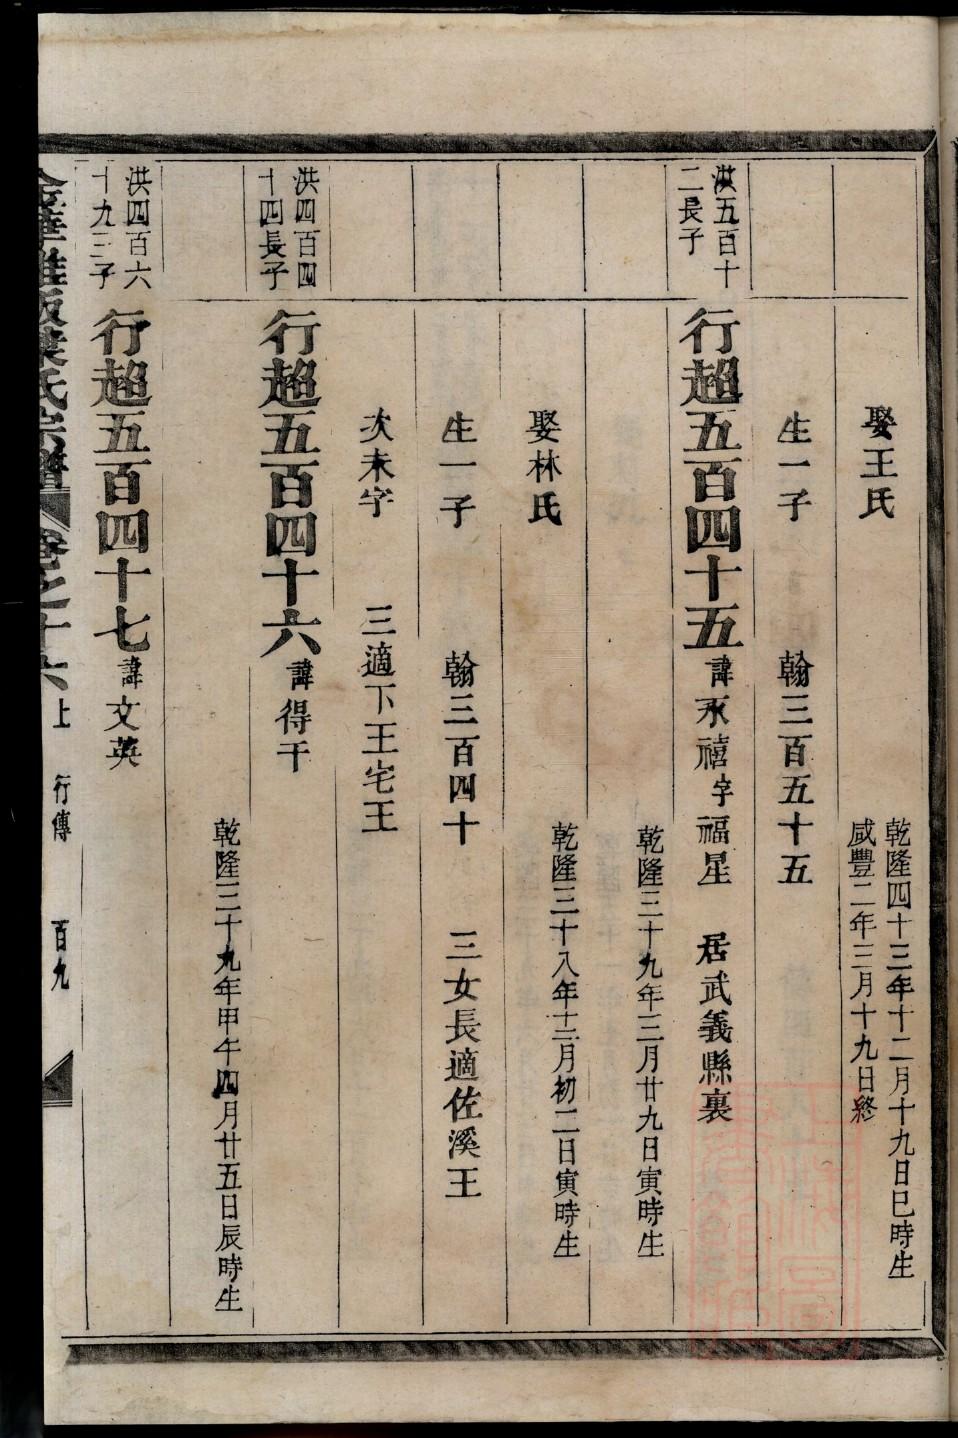 娶王氏
乾隆四十三年十二月十九日巳時生
咸豐二年三月十九日終
生一子 翰三百五十五
洪五百十
二長子
行超五百四十五諱永禧字福星 居武義縣裏
乾隆三十九年三月廿九日寅時生
娶林氏
乾隆三十八年十二月初二日寅時生
生一子 翰三百四十 三女長適佐溪王
次未字 三適下王宅王
洪四百四
十四長子
行超五百四十六諱得干
乾隆三十九年甲午四月廿五日辰時生
洪四百六
十九三子
行超五百四十七諱文英
氏宗譜 卷之十六上 行傳 百九